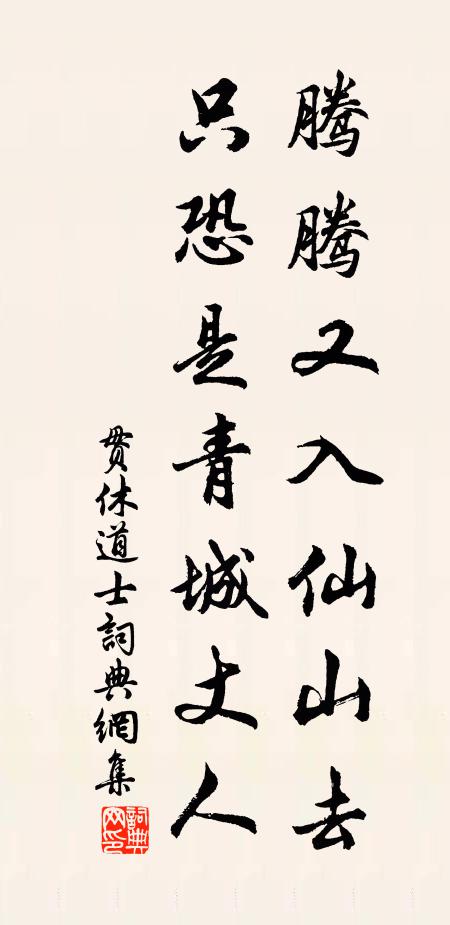 腾腾又入仙山去
只恐是青城丈人
贯休道士詞典網集
詞典网印